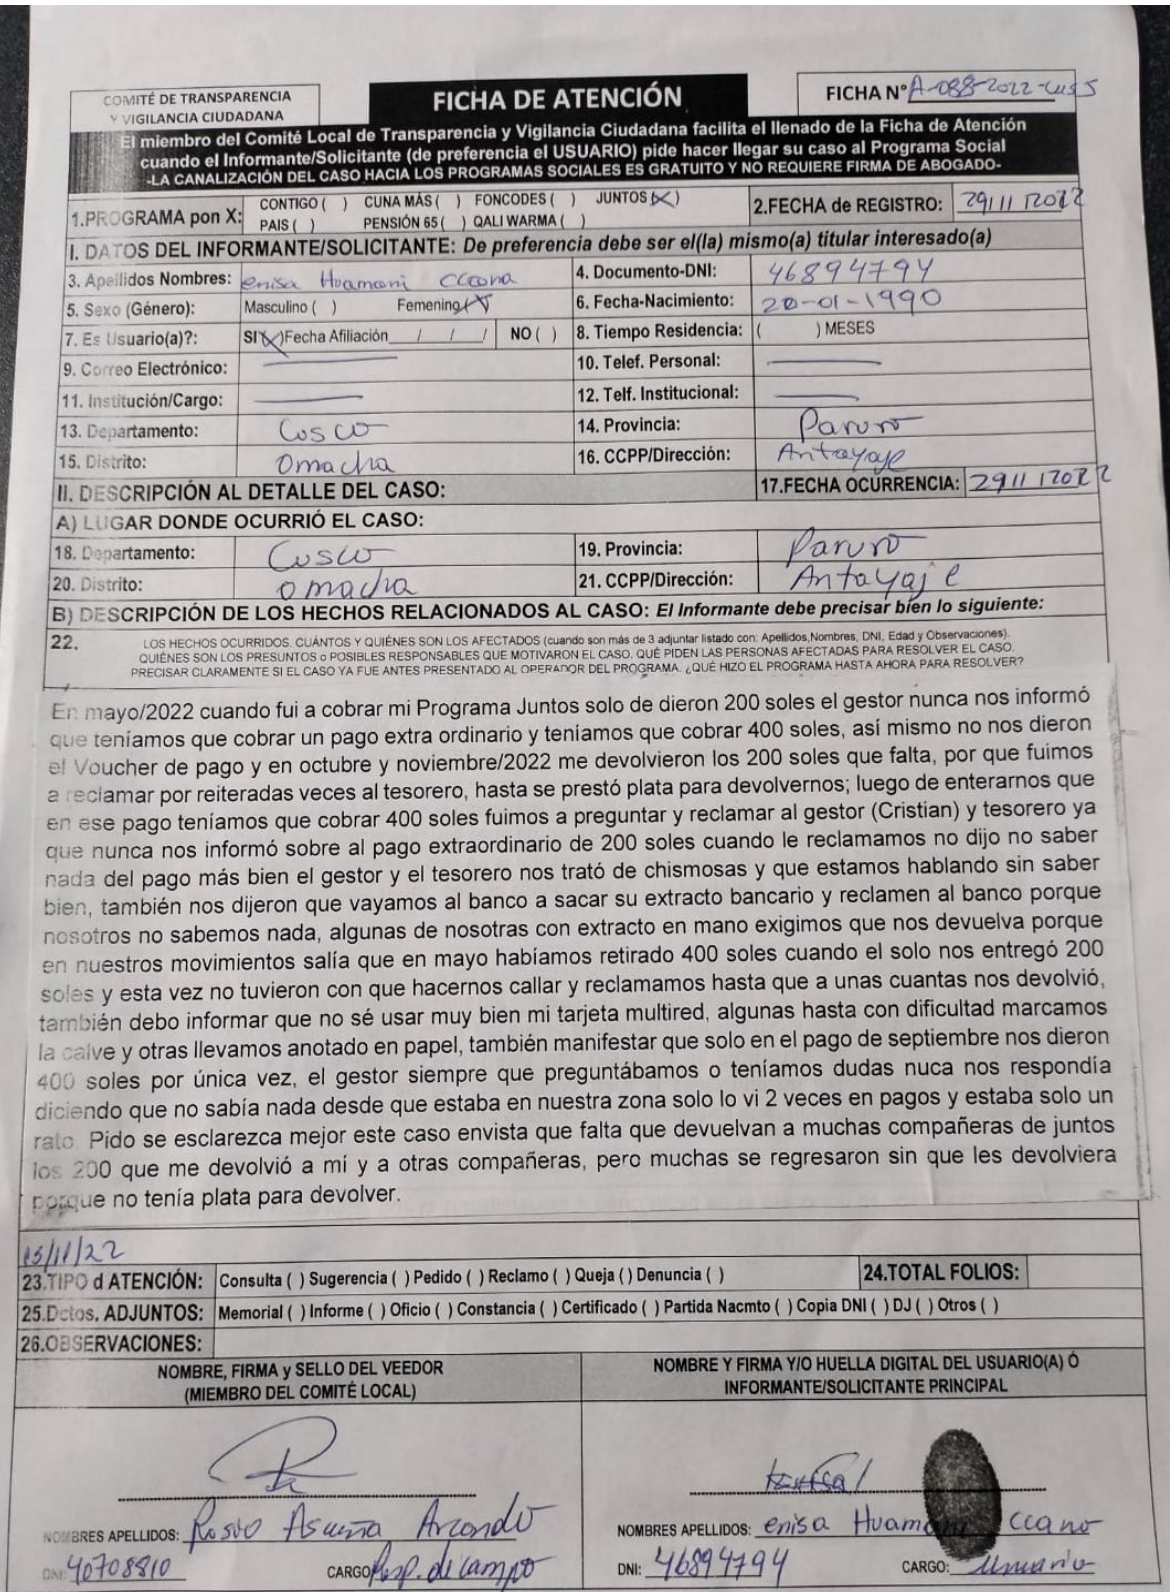 COMITÉ DE TRANSPARENCIA
Y VIGILANCIA CIUDADANA
FICHA DE ATENCIÓN
FICHA N° A-088-2022-CUSS
El miembro del Comité Local de Transparencia y Vigilancia Ciudadana facilita el llenado de la Ficha de Atención
cuando el Informante/Solicitante (de preferencia el USUARIO) pide hacer llegar su caso al Programa Social
-LA CANALIZACIÓN DEL CASO HACIA LOS PROGRAMAS SOCIALES ES GRATUITO Y NO REQUIERE FIRMA DE ABOGADO-
1.PROGRAMA pon X: CONTIGO ( ) CUNA MÁS ( ) FONCODES ( ) JUNTOS (X)
PAIS ( ) PENSIÓN 65 ( ) QALI WARMA ( )
2.FECHA de REGISTRO: 29/11/2022
I. DATOS DEL INFORMANTE/SOLICITANTE: De preferencia debe ser el(la) mismo(a) titular interesado(a)
3. Apellidos Nombres: enisa Huamani Cccona 4. Documento-DNI: 46894794
5. Sexo (Género): Masculino ( ) Femenino (X) 6. Fecha-Nacimiento: 20-01-1990
7. Es Usuario(a)?: SI (X) Fecha Afiliación / / / NO ( ) 8. Tiempo Residencia: ( ) MESES
9. Correo Electrónico: 10. Telef. Personal:
11. Institución/Cargo: 12. Telf. Institucional:
13. Departamento: Cusco 14. Provincia: Paruro
15. Distrito: Omacha 16. CCPP/Dirección: Antayaje
II. DESCRIPCIÓN AL DETALLE DEL CASO: 17.FECHA OCURRENCIA: 29/11/2022
A) LUGAR DONDE OCURRIÓ EL CASO:
18. Departamento: Cusco 19. Provincia: Paruro
20. Distrito: omacha 21. CCPP/Dirección: Antayaje
B) DESCRIPCIÓN DE LOS HECHOS RELACIONADOS AL CASO: El Informante debe precisar bien lo siguiente:
22. LOS HECHOS OCURRIDOS. CUÁNTOS Y QUIÉNES SON LOS AFECTADOS (cuando son más de 3 adjuntar listado con: Apellidos,Nombres, DNI, Edad y Observaciones).
QUIÉNES SON LOS PRESUNTOS o POSIBLES RESPONSABLES QUE MOTIVARON EL CASO. QUÉ PIDEN LAS PERSONAS AFECTADAS PARA RESOLVER EL CASO.
PRECISAR CLARAMENTE SI EL CASO YA FUE ANTES PRESENTADO AL OPERADOR DEL PROGRAMA. ¿QUÉ HIZO EL PROGRAMA HASTA AHORA PARA RESOLVER?
En mayo/2022 cuando fui a cobrar mi Programa Juntos solo de dieron 200 soles el gestor nunca nos informó
que teníamos que cobrar un pago extra ordinario y teníamos que cobrar 400 soles, así mismo no nos dieron
el Voucher de pago y en octubre y noviembre/2022 me devolvieron los 200 soles que falta, por que fuimos
a reclamar por reiteradas veces al tesorero, hasta se prestó plata para devolvernos; luego de enterarnos que
en ese pago teníamos que cobrar 400 soles fuimos a preguntar y reclamar al gestor (Cristian) y tesorero ya
que nunca nos informó sobre al pago extraordinario de 200 soles cuando le reclamamos no dijo no saber
nada del pago más bien el gestor y el tesorero nos trató de chismosas y que estamos hablando sin saber
bien, también nos dijeron que vayamos al banco a sacar su extracto bancario y reclamen al banco porque
nosotros no sabemos nada, algunas de nosotras con extracto en mano exigimos que nos devuelva porque
en nuestros movimientos salía que en mayo habíamos retirado 400 soles cuando el solo nos entregó 200
soles y esta vez no tuvieron con que hacernos callar y reclamamos hasta que a unas cuantas nos devolvió,
también debo informar que no sé usar muy bien mi tarjeta multired, algunas hasta con dificultad marcamos
la calve y otras llevamos anotado en papel, también manifestar que solo en el pago de septiembre nos dieron
400 soles por única vez, el gestor siempre que preguntábamos o teníamos dudas nuca nos respondía
diciendo que no sabía nada desde que estaba en nuestra zona solo lo vi 2 veces en pagos y estaba solo un
rato. Pido se esclarezca mejor este caso envista que falta que devuelvan a muchas compañeras de juntos
los 200 que me devolvió a mí y a otras compañeras, pero muchas se regresaron sin que les devolviera
porque no tenía plata para devolver.
15/11/22
23.TIPO d ATENCIÓN: Consulta ( ) Sugerencia ( ) Pedido ( ) Reclamo ( ) Queja ( ) Denuncia ( ) 24.TOTAL FOLIOS:
25.Dctos. ADJUNTOS: Memorial ( ) Informe ( ) Oficio ( ) Constancia ( ) Certificado ( ) Partida Nacmto ( ) Copia DNI ( ) DJ ( ) Otros ( )
26.OBSERVACIONES:
NOMBRE, FIRMA y SELLO DEL VEEDOR
(MIEMBRO DEL COMITÉ LOCAL)
NOMBRE Y FIRMA Y/O HUELLA DIGITAL DEL USUARIO(A) Ó
INFORMANTE/SOLICITANTE PRINCIPAL
NOMBRES APELLIDOS: Arcondo
DNI: 40708810 CARGO: Resp. de campo
NOMBRES APELLIDOS: enisa Huamani Ccano
DNI: 46894794 CARGO: Usuario